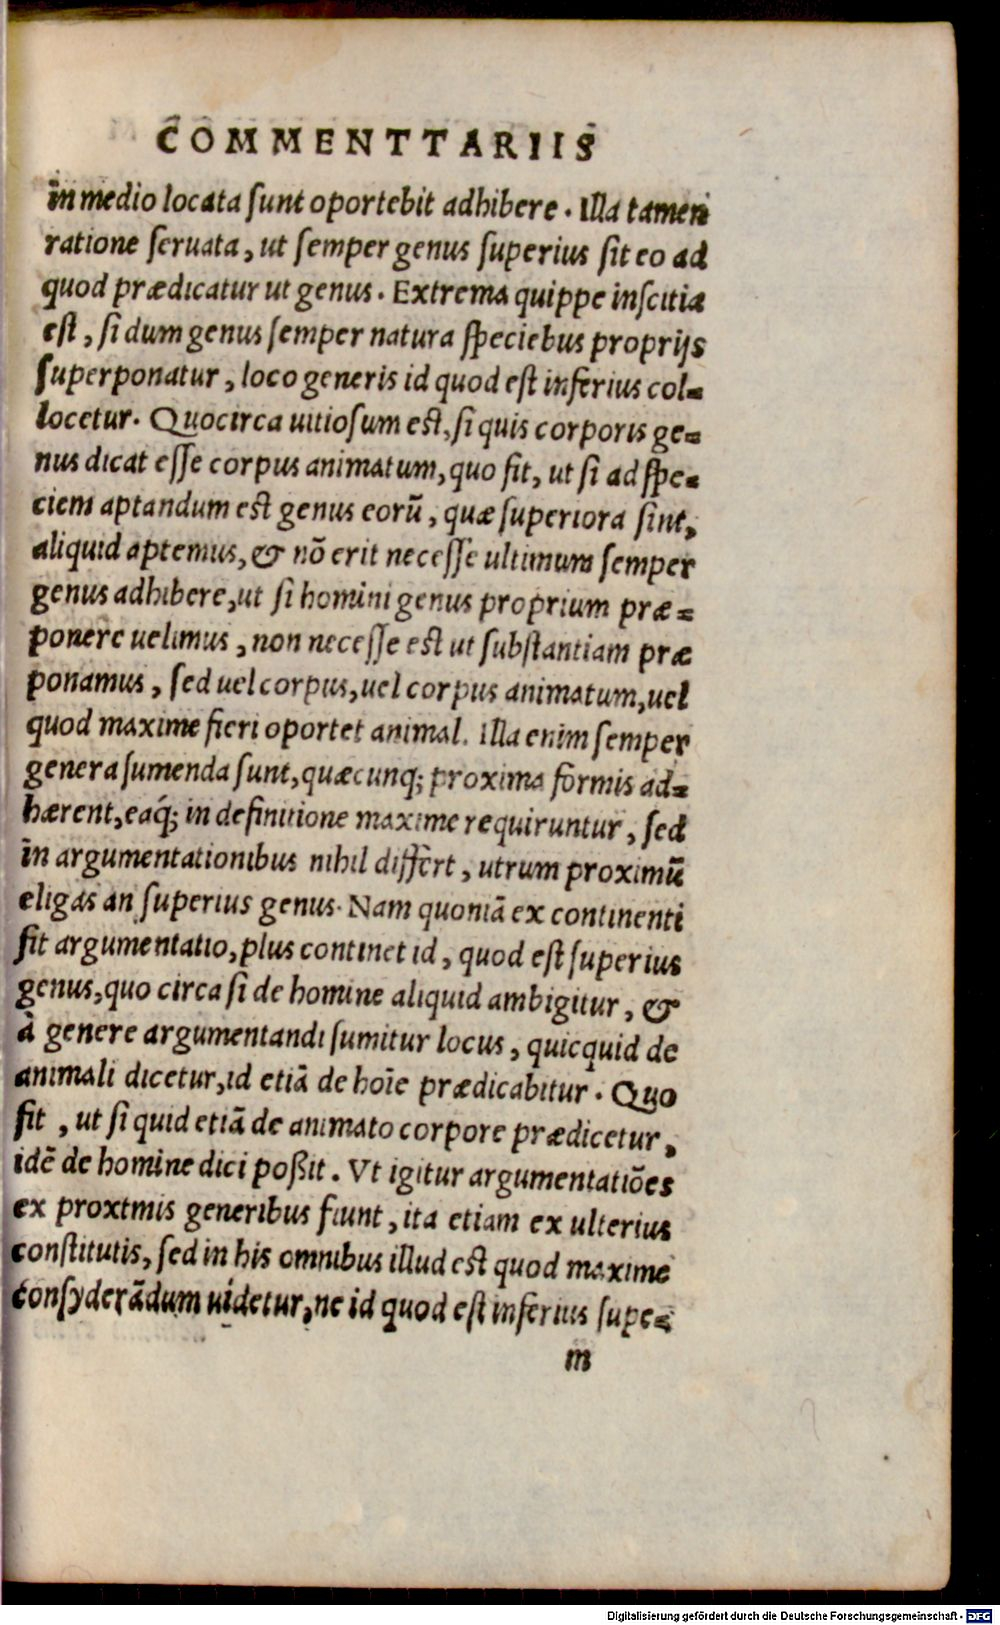 COMMENTTARIIS
in medio locata ſunt oportebit adhibere. Illa tamen
ratione ſeruata, ut ſemper genus ſuperius ſit eo ad
quod prædicatur ut genus. Extrema quippe inſcitia
eſt, ſi dum genus ſemper natura ſpeciebus proprijs
ſuperponatur, loco generis id quod eſt inferius col-
locetur. Quocirca uitioſum eſt, ſi quis corporis ge-
nus dicat eſſe corpus animatum, quo fit, ut ſi ad ſpe-
ciem aptandum eſt genus eorū, quæ ſuperiora ſint,
aliquid aptemus, & nō erit neceſſe ultimum ſemper
genus adhibere, ut ſi homini genus proprium præ-
ponere uelimus, non neceſſe eſt ut ſubſtantiam præ
ponamus, ſed uel corpus, uel corpus animatum, uel
quod maxime fieri oportet animal. Illa enim ſemper
genera ſumenda ſunt, quæcunq; proxima formis ad-
hærent, eaq́; in definitione maxime requiruntur, ſed
in argumentationibus nihil differt, utrum proximū
eligas an ſuperius genus. Nam quoniā ex continenti
fit argumentatio, plus continet id, quod eſt ſuperius
genus, quo circa ſi de homine aliquid ambigitur, &
à genere argumentandi ſumitur locus, quicquid de
animali dicetur, id etiā de hoīe prædicabitur. Quo
fit, ut ſi quid etiā de animato corpore prædicetur,
idē de homine dici poßit. Vt igitur argumentatiōes
ex proxtmis generibus fiunt, ita etiam ex ulterius
conſtitutis, ſed in his omnibus illud eſt quod maxime
conſyderādum uidetur, ne id quod eſt inferius ſupe-
m
Digitalisierung gefördert durch die Deutsche Forschungsgemeinschaft - DFG